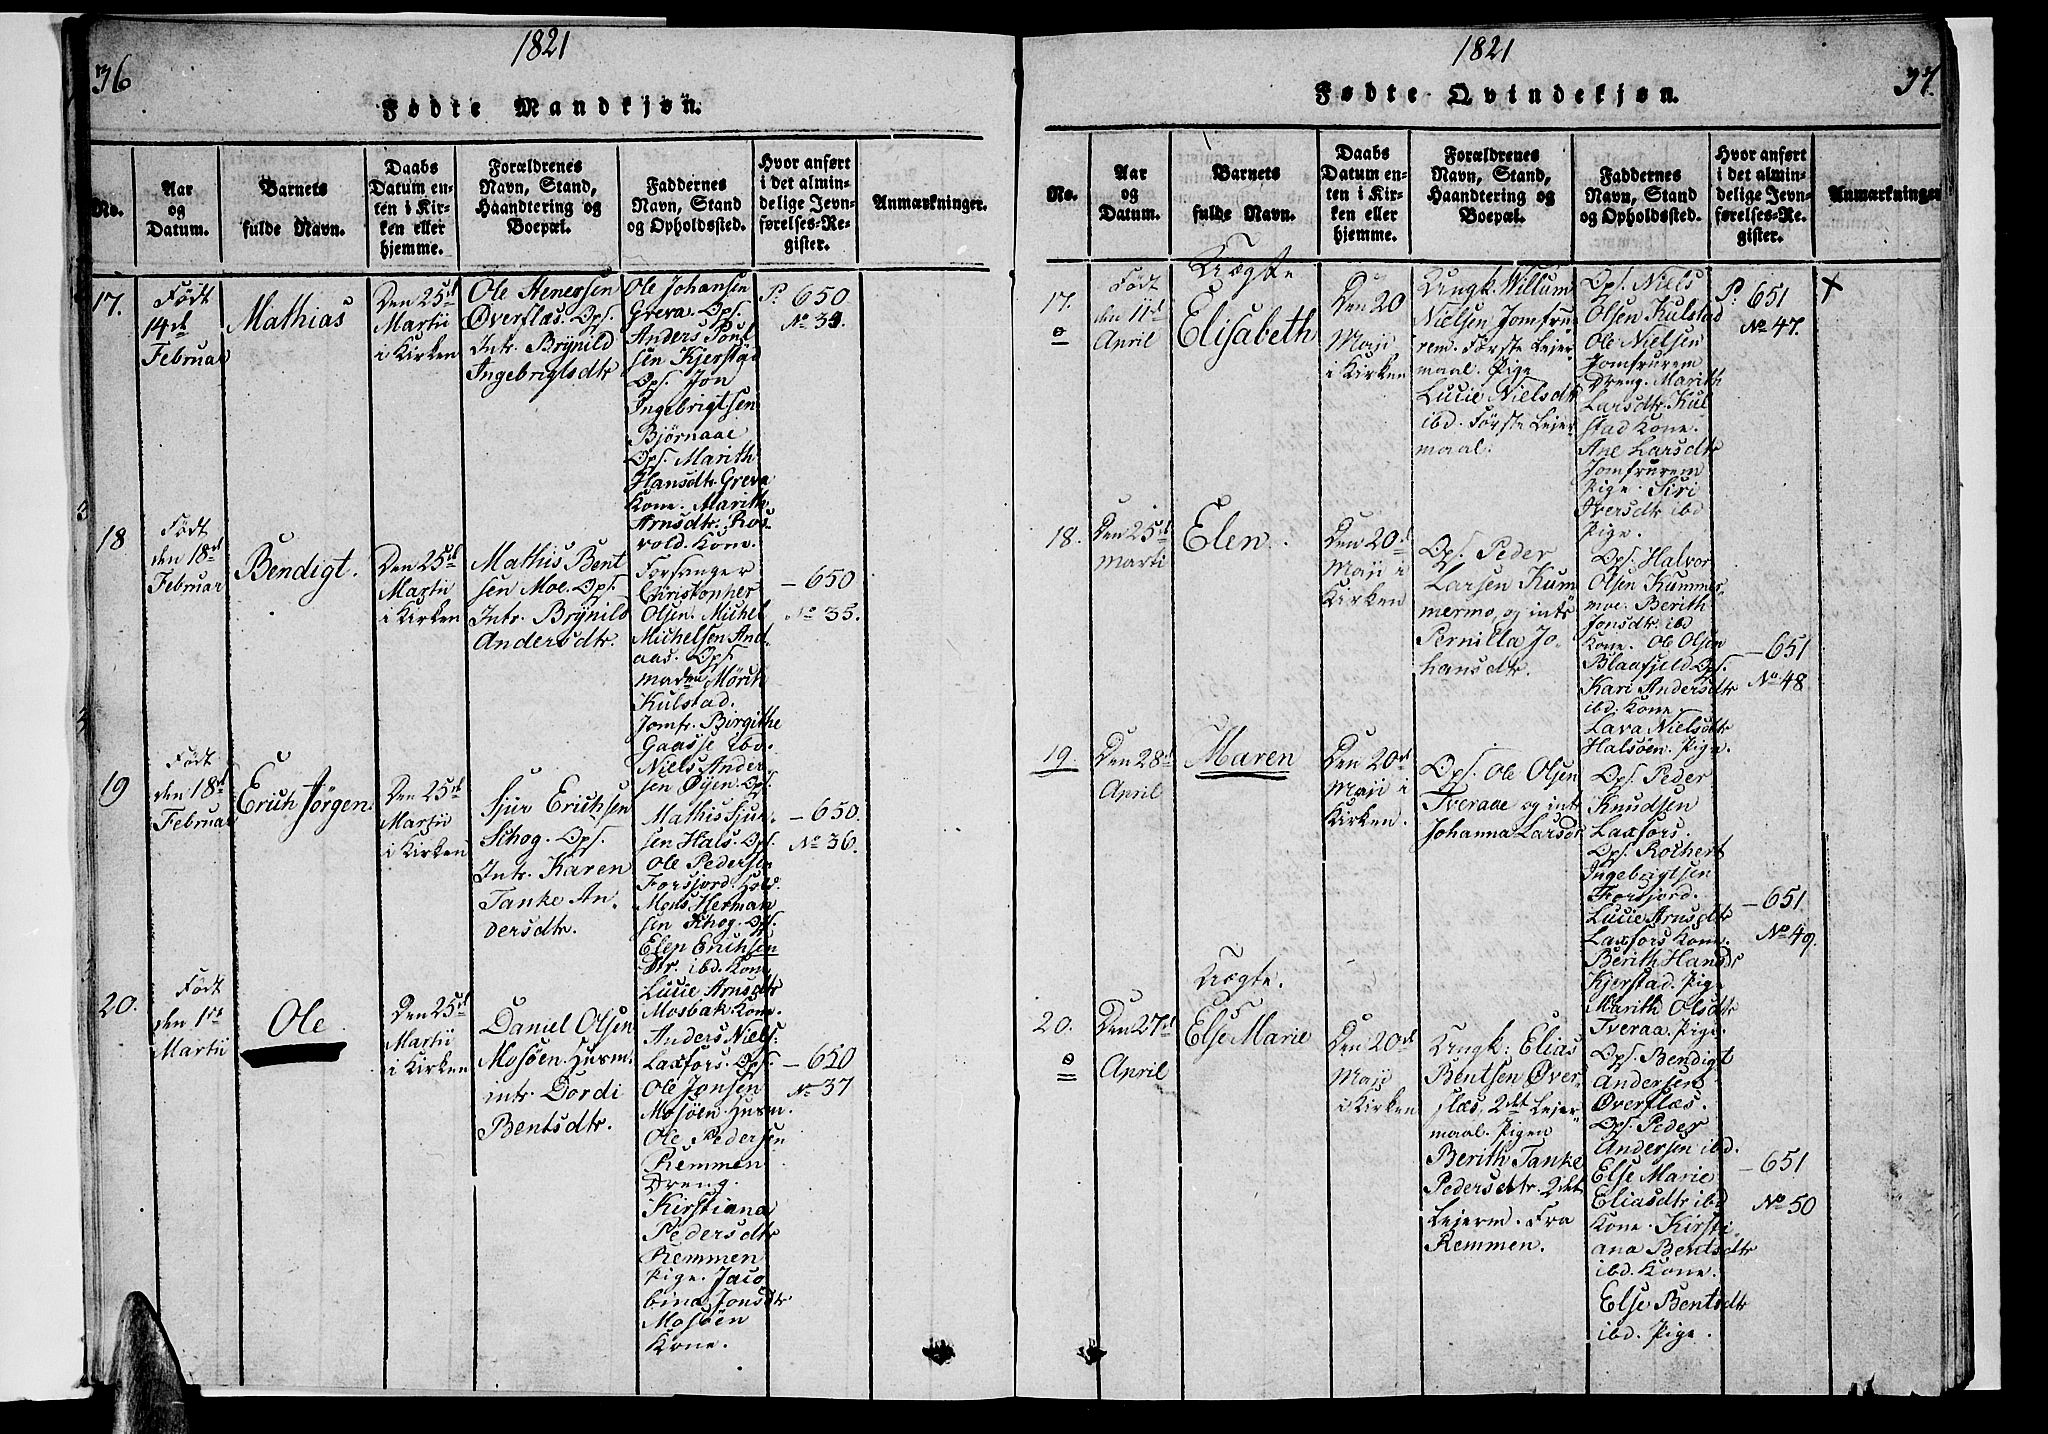 36
1821
Fødte Mandkjøn.
No.
Aar
og
Datum.
Barnets
fulde Navn.
Daabs
Datum en-
ten i Kir-
ken eller
hjemme.
Forældrenes
Navn, Stand,
Haandtering og
Boepæl.
Faddernes
Navn, Stand
og Opholdssted.
Hvor anført
i det almin-
delige Jevn-
førelses-Re-
gister.
Anmærkninger.
17.
Født
14de
Februar
Mathias
Den 25d
Martii
i Kirken
Ole Henersen
Øverflæs. Ops.
Intr. Brÿnild
Ingebrigtsdtr
Ole Johansen
Greva. Ops.
Anders Poul
sen Kjerstad
Ops. Jon
Ingebrigtsen
Bjørnaae
Ops. Marith
Hansdtr Greva
Kone. Marith
Arnsdtr. Ros
vold. Kone.
P. 650
No 34.
18
Født
den 18de
Februar
Bendigt.
Den 25de
Martii
i Kirken
Mathis Bent
sen Moe. Ops.
Intr. Brÿnild
Andersdtr.
Forsanger
Christopher
Olsen. Michel
Michelsen And
aas. Ops.
Maden Mörch
Kulstad.
Jomfr. Birgithe
Gaasse ibd.
Niels Ander
sen Öÿen. Ops.
– 650
No 35.
19
Født
den 18d
Februar
Erich Jörgen.
Den 25de
Martii
i Kirken
Sjur Erichsen
Schog. Ops.
Intr. Karen
Tanke An-
dersdtr.
Mathis Sjur-
sen Hals. Ops.
Ole Pedersen
Forsjord.
Mons Herman
sen Schog. Ops.
Elen Erichsen
dtr. ibd. Kone
Lucie Arnsdtr
Mosbak. Kone.
– 650.
No 36.
20.
Født
den 1ste
Martii
Ole
Den 25de
Martii
i Kirken
Daniel Olsen
Mosöen. Husm.
intr. Dordi
Bentsdtr.
Anders Niels:
Laxfors. Ops.
Ole Jonsen
Mosöen. Husm.
Ole Pedersen
Remmen
Dreng.
Kirstiana
Pedersdtr
Remmen
Pige. Jaco
bina Jonsdtr
Mosöen
Kone.
– 650
No 37
1821
37.
Fødte Qvindekjøn.
No.
Aar
og
Datum.
Barnets
fulde Navn.
Daabs
Datum en-
ten i Kir-
ken eller
hjemme.
Forældrenes
Navn, Stand,
Haandtering og
Boepæl.
Faddernes
Navn, Stand
og Opholdssted.
Hvor anført
i det almin-
delige Jevn-
førelses-Re-
gister.
Anmærkninger
17.
Født
den 11te
April
Uægte
Elisabeth
Den 20
Maji
i Kirken
Ungk. Willum
Nielsen Jomfru
rem. Første Leier
maal. Pige
Lucie Nielsdtr
ibd. Første Leier
maal.
Ops. Niels
Olsen Kulstad
Ole Nielsen
Jomfrurem
Dreng. Marith
Larsdtr. Kul
stad Kone.
Ane Larsdtr
Jomfrurem
Pige. Siri
Iversdtr ibd
Pige.
P. 651
No 47.
18.
Den 25d
Marti
Elen.
Den 20d
Maji i
Kirken
Ops. Peder
Larsen Kum
mermo, og intr
Pernilla Jo-
hansdtr.
Ops. Halvor
Olsen Kummer
moe. Berith
Jonsdtr. ibd
Kone. Ole Olsen
Blaafjeld Ops.
Kari Andersdtr
ibd. Kone
Lava Nielsdtr
Halsöen. Pige.
– 651
No 48
19.
Den 28d
April
Maren
Den 20de
Maji i
Kirken.
Ops. Ole Olsen
Tveraae og intr
Johanna Larsdr
Ops. Peder
Knudsen
Laxfors.
Ops. Rochert
Ingebrigtsen
Forsjord.
Lucie Arnsdtr
Laxfors Kone.
Berith Hansdr
Kjerstad. Pige
Marith Olsdtr
Tveraa. Pige.
– 651.
No 49.
20.
Den 27d
April
Uægte.
Else Marie
Den 20de
Maji
i Kirken
Ungk: Elias
Bentsen Øver-
flæs, 2det Leier
maal. Pigen
Berith Tanke
Pedersdtr. 2det
Leierm. Fra
Remmen.
Ops. Bendigt
Andersen
Øverflæs.
Ops. Peder
Andersen ibd.
Else Marie
Eliasdtr ibd
Kone. Kirsti
ana Bentsdtr
ibd. Kone.
Else Bentsdtr
ibd. Pige.
– 651
No 50